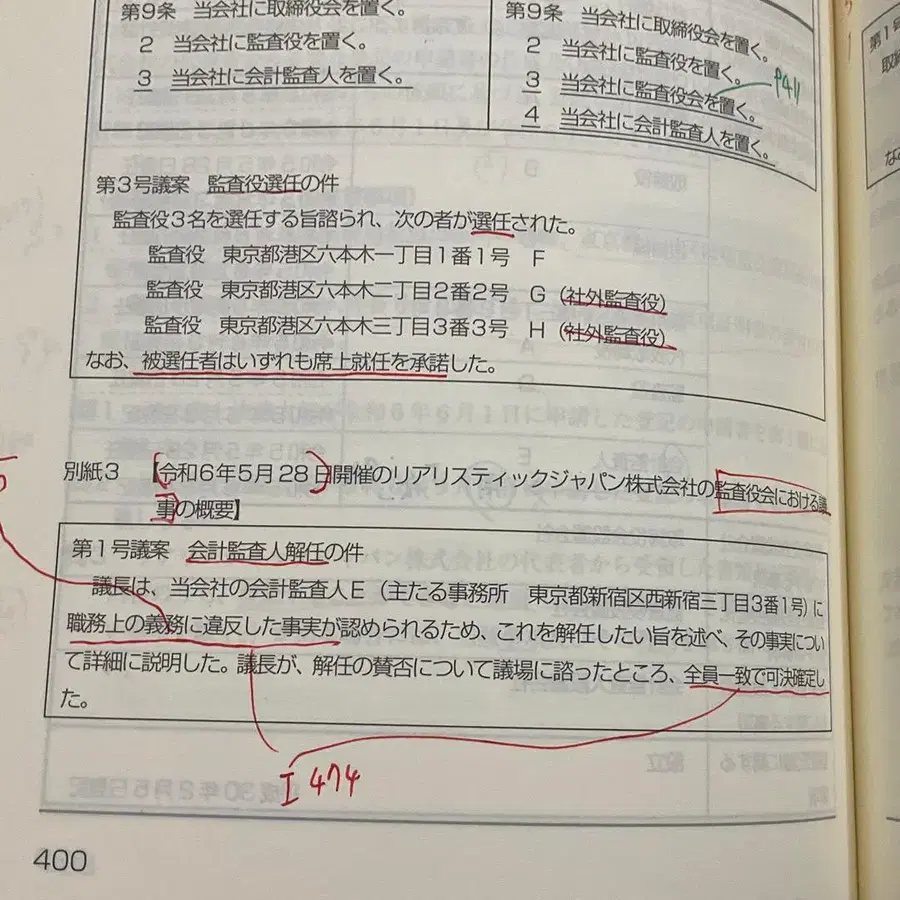 第9条 当会社に取締役会を置く。
2 当会社に監査役を置く。
3 当会社に会計監査人を置く。
第9条 当会社に取締役会を置く。
2 当会社に監査役を置く。
3 当会社に監査役会を置く。
4 当会社に会計監査人を置く。
P411
第3号議案 監査役選任の件
監査役3名を選任する旨諮られ、次の者が選任された。
監査役 東京都港区六本木一丁目1番1号 F
監査役 東京都港区六本木二丁目2番2号 G(社外監査役)
監査役 東京都港区六本木三丁目3番3号 H(社外監査役)
なお、被選任者はいずれも席上就任を承諾した。
別紙3 【令和6年5月28日開催のリアリスティックジャパン株式会社の監査役会における議
事の概要】
第1号議案 会計監査人解任の件
議長は、当会社の会計監査人E(主たる事務所 東京都新宿区西新宿三丁目3番1号)に
職務上の義務に違反した事実が認められるため、これを解任したい旨を述べ、その事実につい
て詳細に説明した。議長が、解任の賛否について議場に諮ったところ、全員一致で可決確定し
た。
I 474
400
第1号
取締